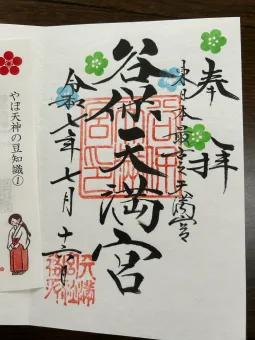 奉拝
東日本最古天満宮
谷保天満宮
令和七年七月十三日
やぼ天神の豆知識①